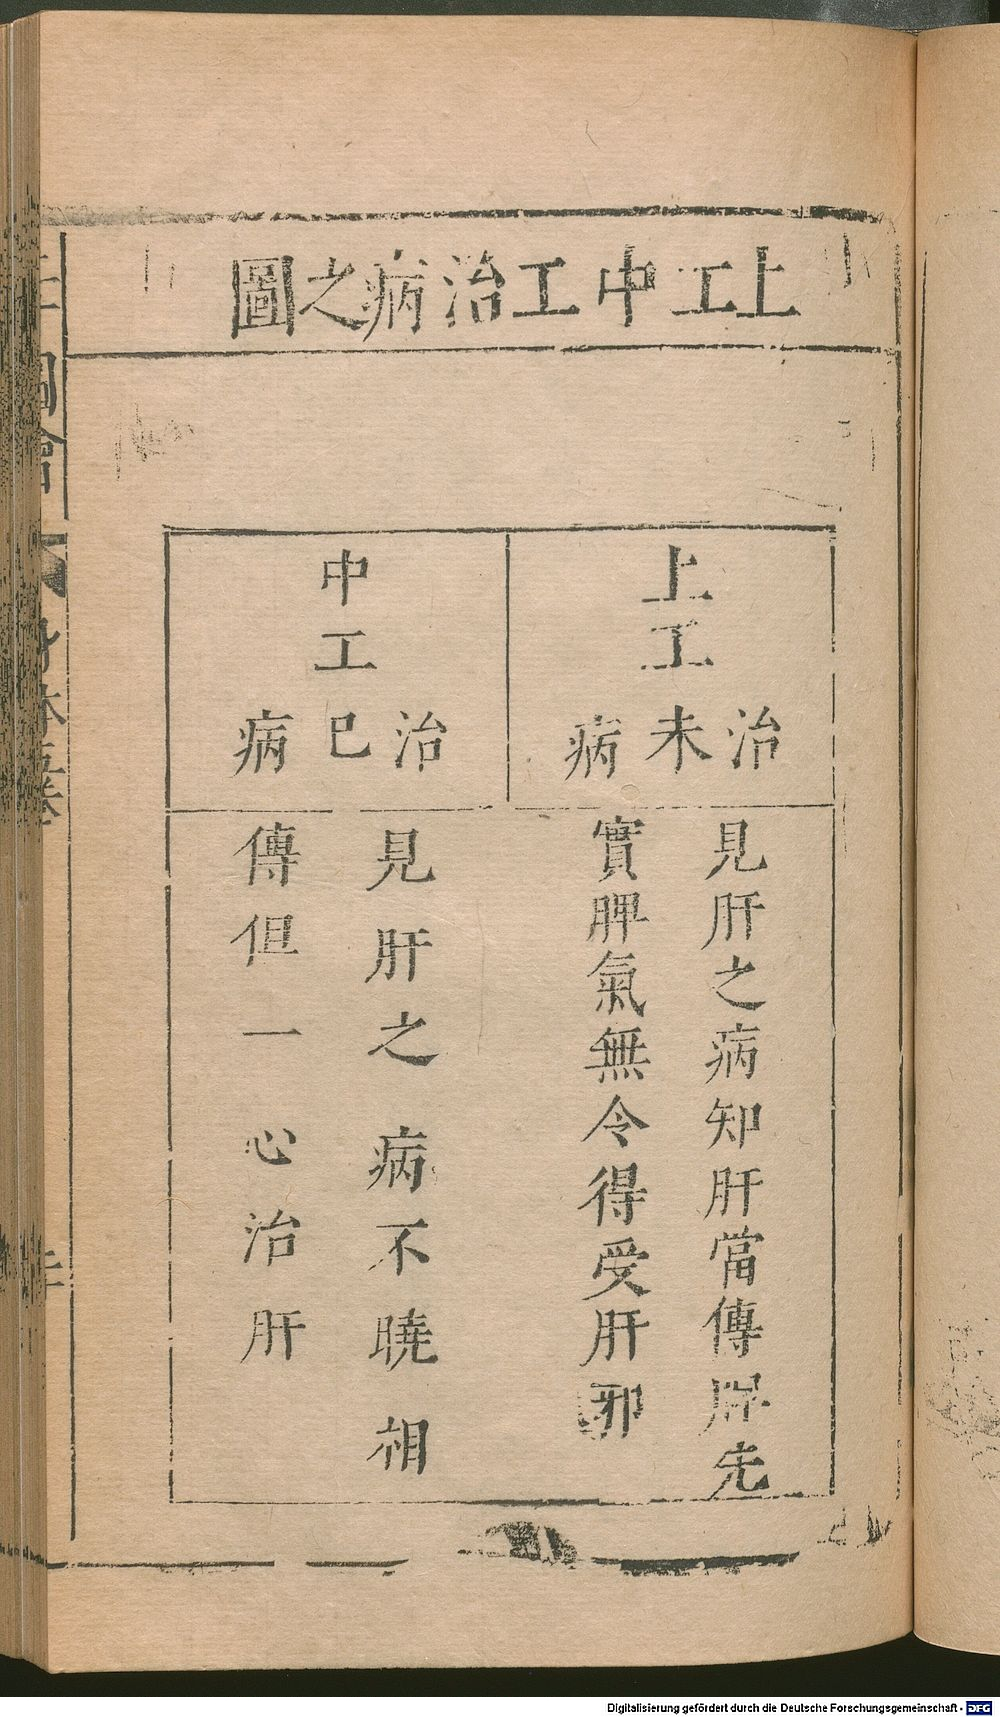 上工中工治病之圖
上工
治未病
見肝之病知肝當傳脾先
實脾氣無令得受肝邪
中工
治已病
見肝之病不曉相
傳但一心治肝
圖會
身体
Digitalisierung gefördert durch die Deutsche Forschungsgemeinschaft - DFG